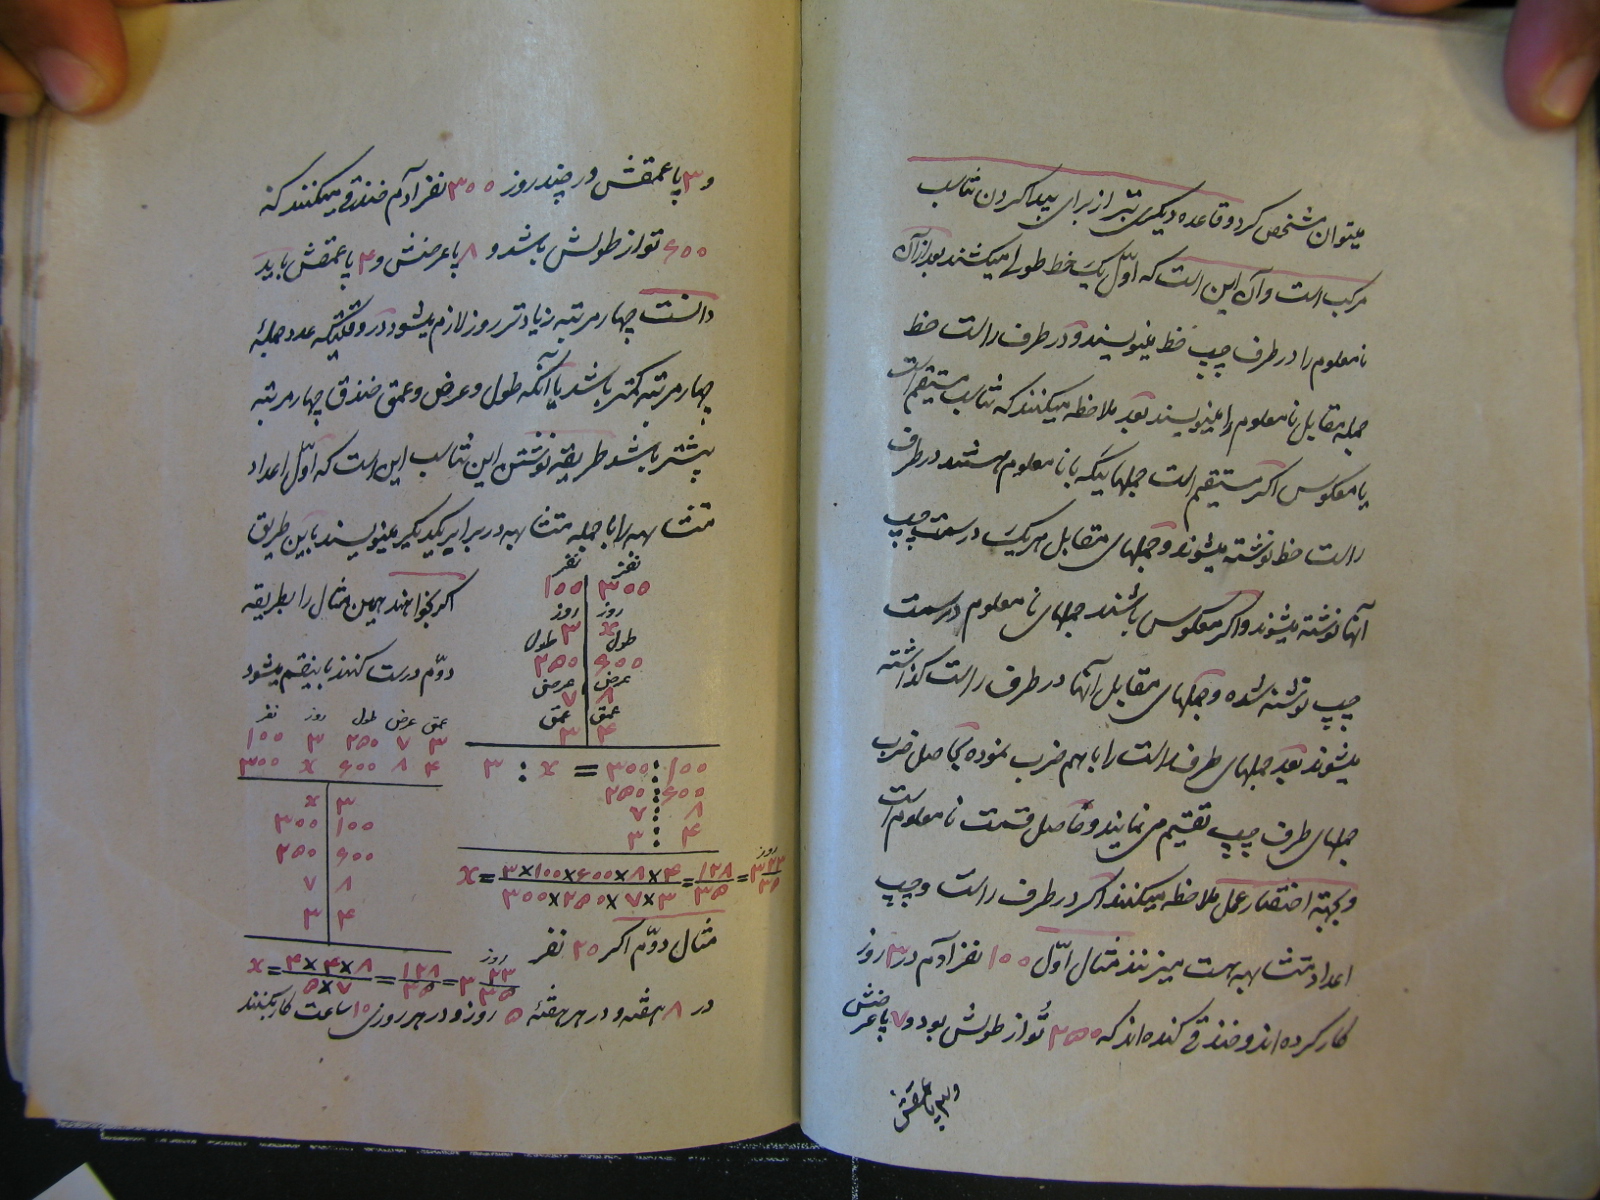 میتوان مشخص کرد و قاعده دیگری نیز از برای پیدا کردن تناسب
مرکب است و آن این است که اوّل یک خط طولی میکشند بعد از آن
نامعلوم را در طرف چپ خط مینویسند و در طرف راست خط
جمله مقابل نامعلوم را مینویسند بعد ملاحظه میکنند که تناسب مستقیم است
یا معکوس اگر مستقیم است جملهائیکه با نامعلوم هستند در طرف
راست خط نوشته میشوند و جملهای مقابل هر یک در سمت چپ
آنها نوشته میشوند و اگر معکوس باشند جملهای نامعلوم در سمت
چپ نوشته شده و جملهای مقابل آنها در طرف راست گذاشته
میشوند بعد جملهای طرف راست را با هم ضرب نموده بحاصل ضرب
جملهای طرف چپ تقسیم می نمایند و حاصل قسمت نامعلوم است
و بجهته اختصار عمل ملاحظه میکنند اگر در طرف راست و چپ
اعداد متشابهه هست میزنند مثال اوّل ۱۰۰ نفر آدم در ۳ روز
کار کرده اند و خندقی کنده اند که ۲۵۰ تواز طولش بود و ۷ پا عرضش
و ۳ پا عمقش
و ۳ پا عمقش در چند روز ۳۰۰ نفر آدم خندقی میکنند که
۶۰۰ تواز طولش باشد و ۸ پا عرضش و ۴ پا عمقش باید
دانست چهار مرتبه زیادتر روز لازم میشود در وقتیکه عدد جملهٔ
چهار مرتبه کمتر باشد یا آنکه طول و عرض و عمق خندق چهار مرتبه
بیشتر باشد طریقه نوشتن این تناسب این است که اوّل اعداد
متشابهه را با جمله متشابهه در برابر یکدیگر مینویسند باین طریق
نفر نفر
۳۰۰ ۱۰۰
روز روز
x ۳
طول طول
۶۰۰ ۲۵۰
عرض عرض
۸ ۷
عمق عمق
۴ ۳
۳ : x = ۳۰۰ : ۱۰۰
۲۵۰ : ۶۰۰
۷ : ۸
۳ : ۴
x = ۳×۱۰۰×۶۰۰×۸×۴ / ۳۰۰×۲۵۰×۷×۳ = ۱۲۸ / ۳۵ = ۳ ۲۳/۳۵ روز
اگر بخواهند همین مثال را بطریقه
دوّم درست کنند باینقسم میشود
عمق عرض طول روز نفر
۳ ۷ ۲۵۰ ۳ ۱۰۰
۴ ۸ ۶۰۰ x ۳۰۰
x ۳
۳۰۰ ۱۰۰
۲۵۰ ۶۰۰
۷ ۸
۳ ۴
x = ۴×۴×۸ / ۵×۷ = ۱۲۸ / ۳۵ = ۳ ۲۳/۳۵ روز
مثال دوّم اگر ۲۰ نفر
در ۸ هفته و در هر هفتهٔ ۵ روز و در هر روزی ۱۰ ساعت کار بکنند